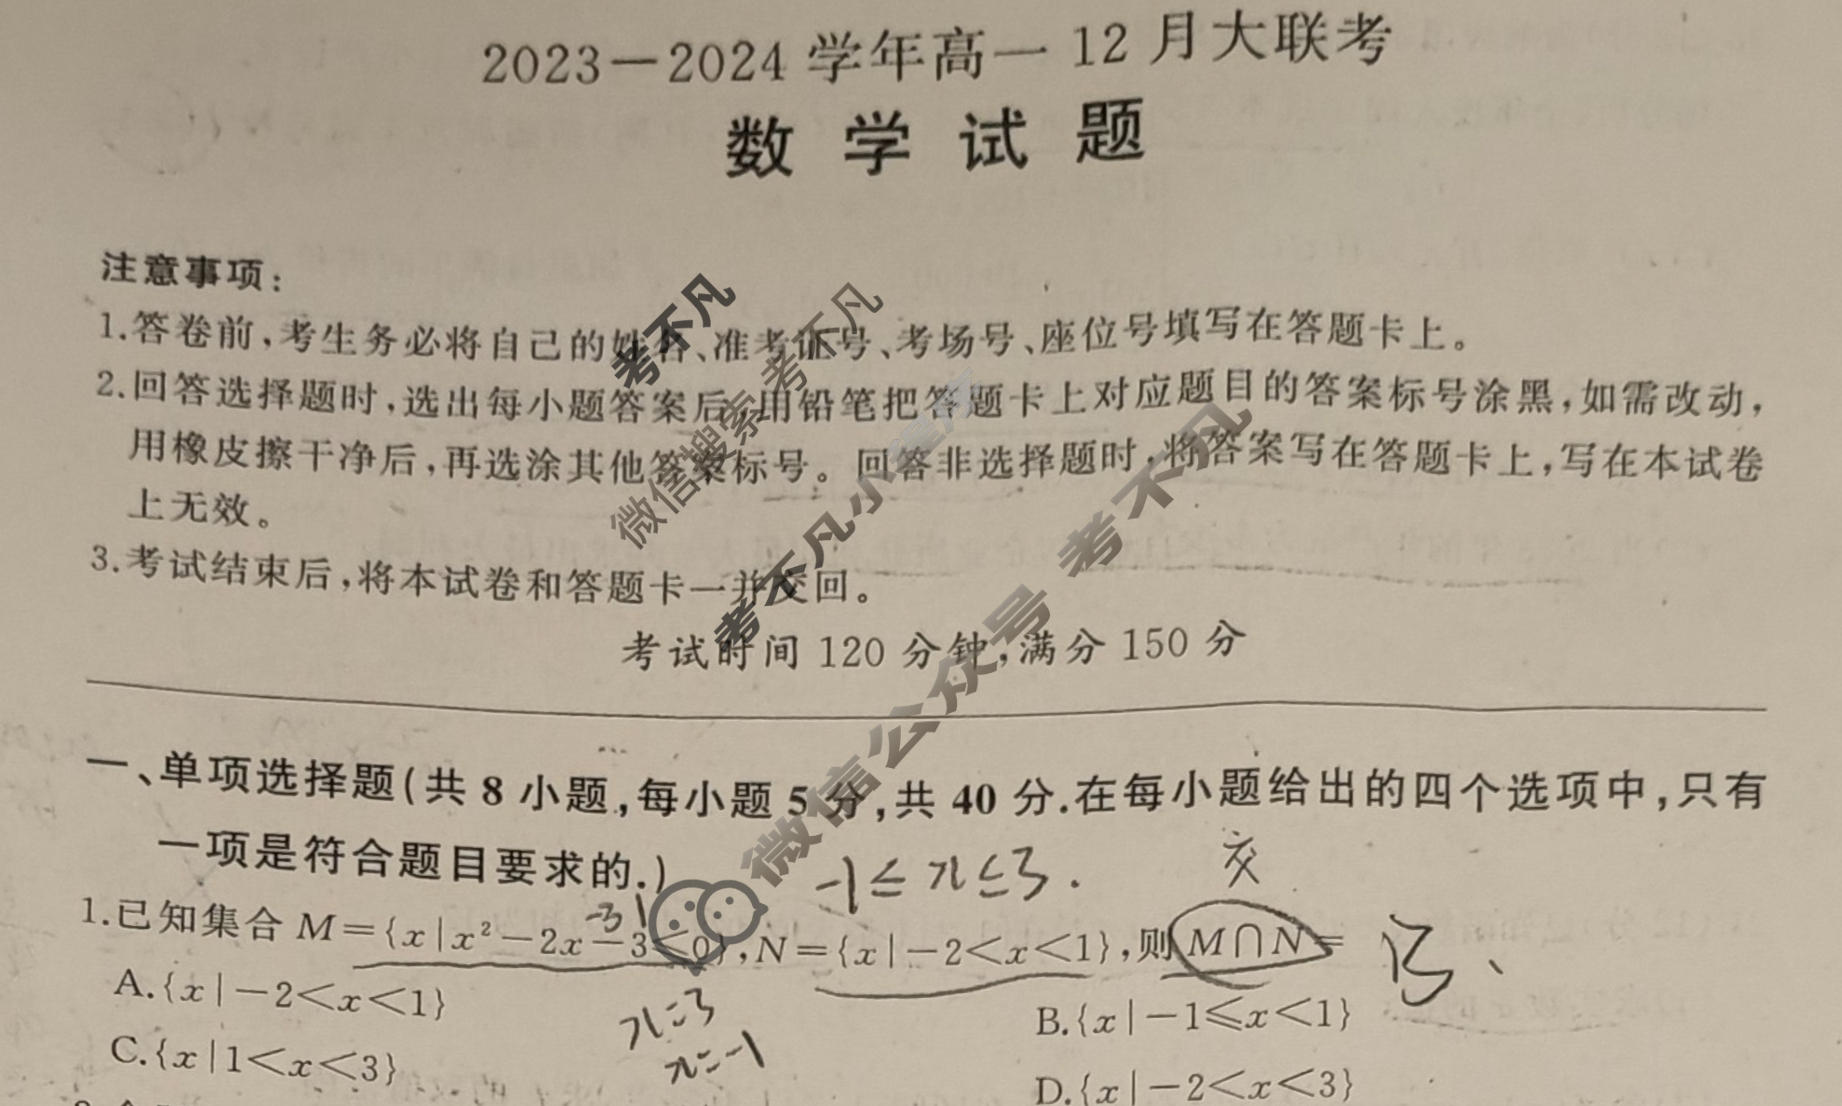 2023—2024学年高一12月大联考
数学试题
注意事项:
1.答卷前,考生务必将自己的姓名、准考证号、考场号、座位号填写在答题卡上。
2.回答选择题时,选出每小题答案后,用铅笔把答题卡上对应题目的答案标号涂黑,如需改动,
用橡皮擦干净后,再选涂其他答案标号。回答非选择题时,将答案写在答题卡上,写在本试卷
上无效。
3.考试结束后,将本试卷和答题卡一并交回。
考试时间120分钟,满分150分
考不凡
微信搜索 考不凡
考不凡小程序
微信公众号 考不凡
一、单项选择题(共8小题,每小题5分,共40分.在每小题给出的四个选项中,只有
一项是符合题目要求的.)
-1≤x≤3.
交
-3 1
1.已知集合M={x|x²-2x-3≤0},N={x|-2<x<1},则M∩N=
B、
A.{x|-2<x<1}
B.{x|-1≤x<1}
x=3
x=-1
C.{x|1<x<3}
D.{x|-2<x<3}